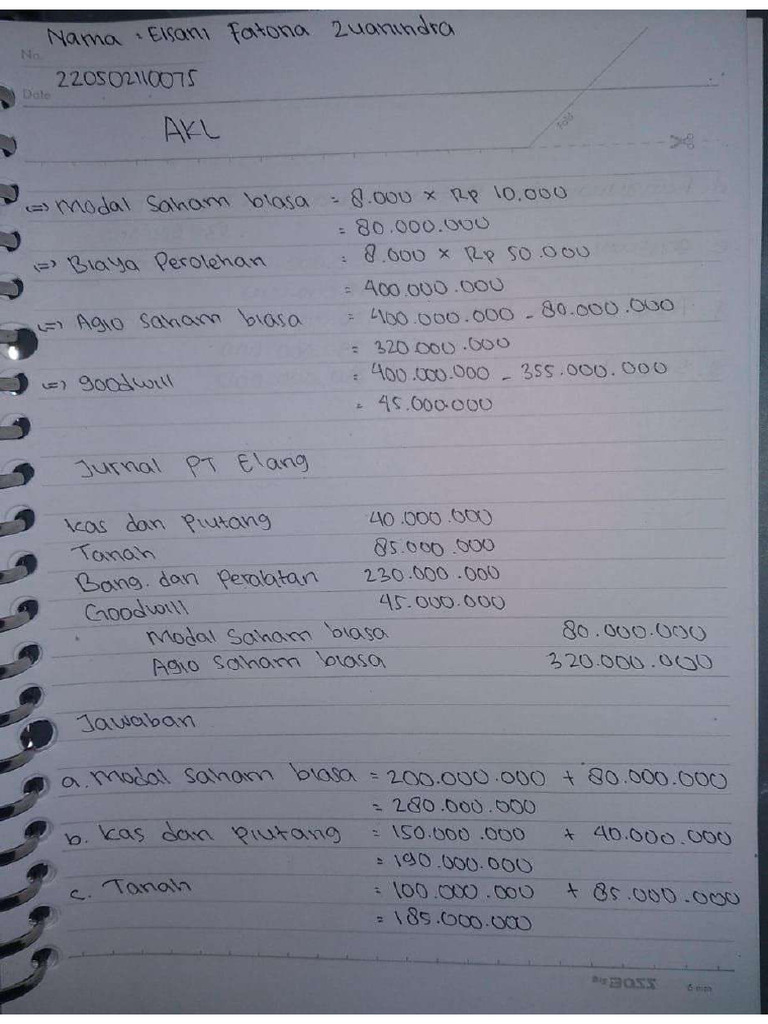 Nama : Elsani Fatona Zuanindra
No.
220502110075
Date
AKL
fold
=> Modal Saham biasa = 8.000 × Rp 10.000
= 80.000.000
=> Biaya Perolehan : 8.000 × Rp 50.000
= 400.000.000
=> Agio saham biasa = 400.000.000 - 80.000.000
= 320.000.000
=> goodwill = 400.000.000 - 355.000.000
= 45.000.000
Jurnal PT Elang
Kas dan Piutang 40.000.000
Tanah 85.000.000
Bang. dan Peralatan 230.000.000
Goodwill 45.000.000
Modal Saham biasa 80.000.000
Agio saham biasa 320.000.000
Jawaban
a. Modal Saham biasa = 200.000.000 + 80.000.000
= 280.000.000
b. Kas dan Piutang = 150.000.000 + 40.000.000
= 190.000.000
c. Tanah = 100.000.000 + 85.000.000
= 185.000.000
BIG BOSS 6 mm